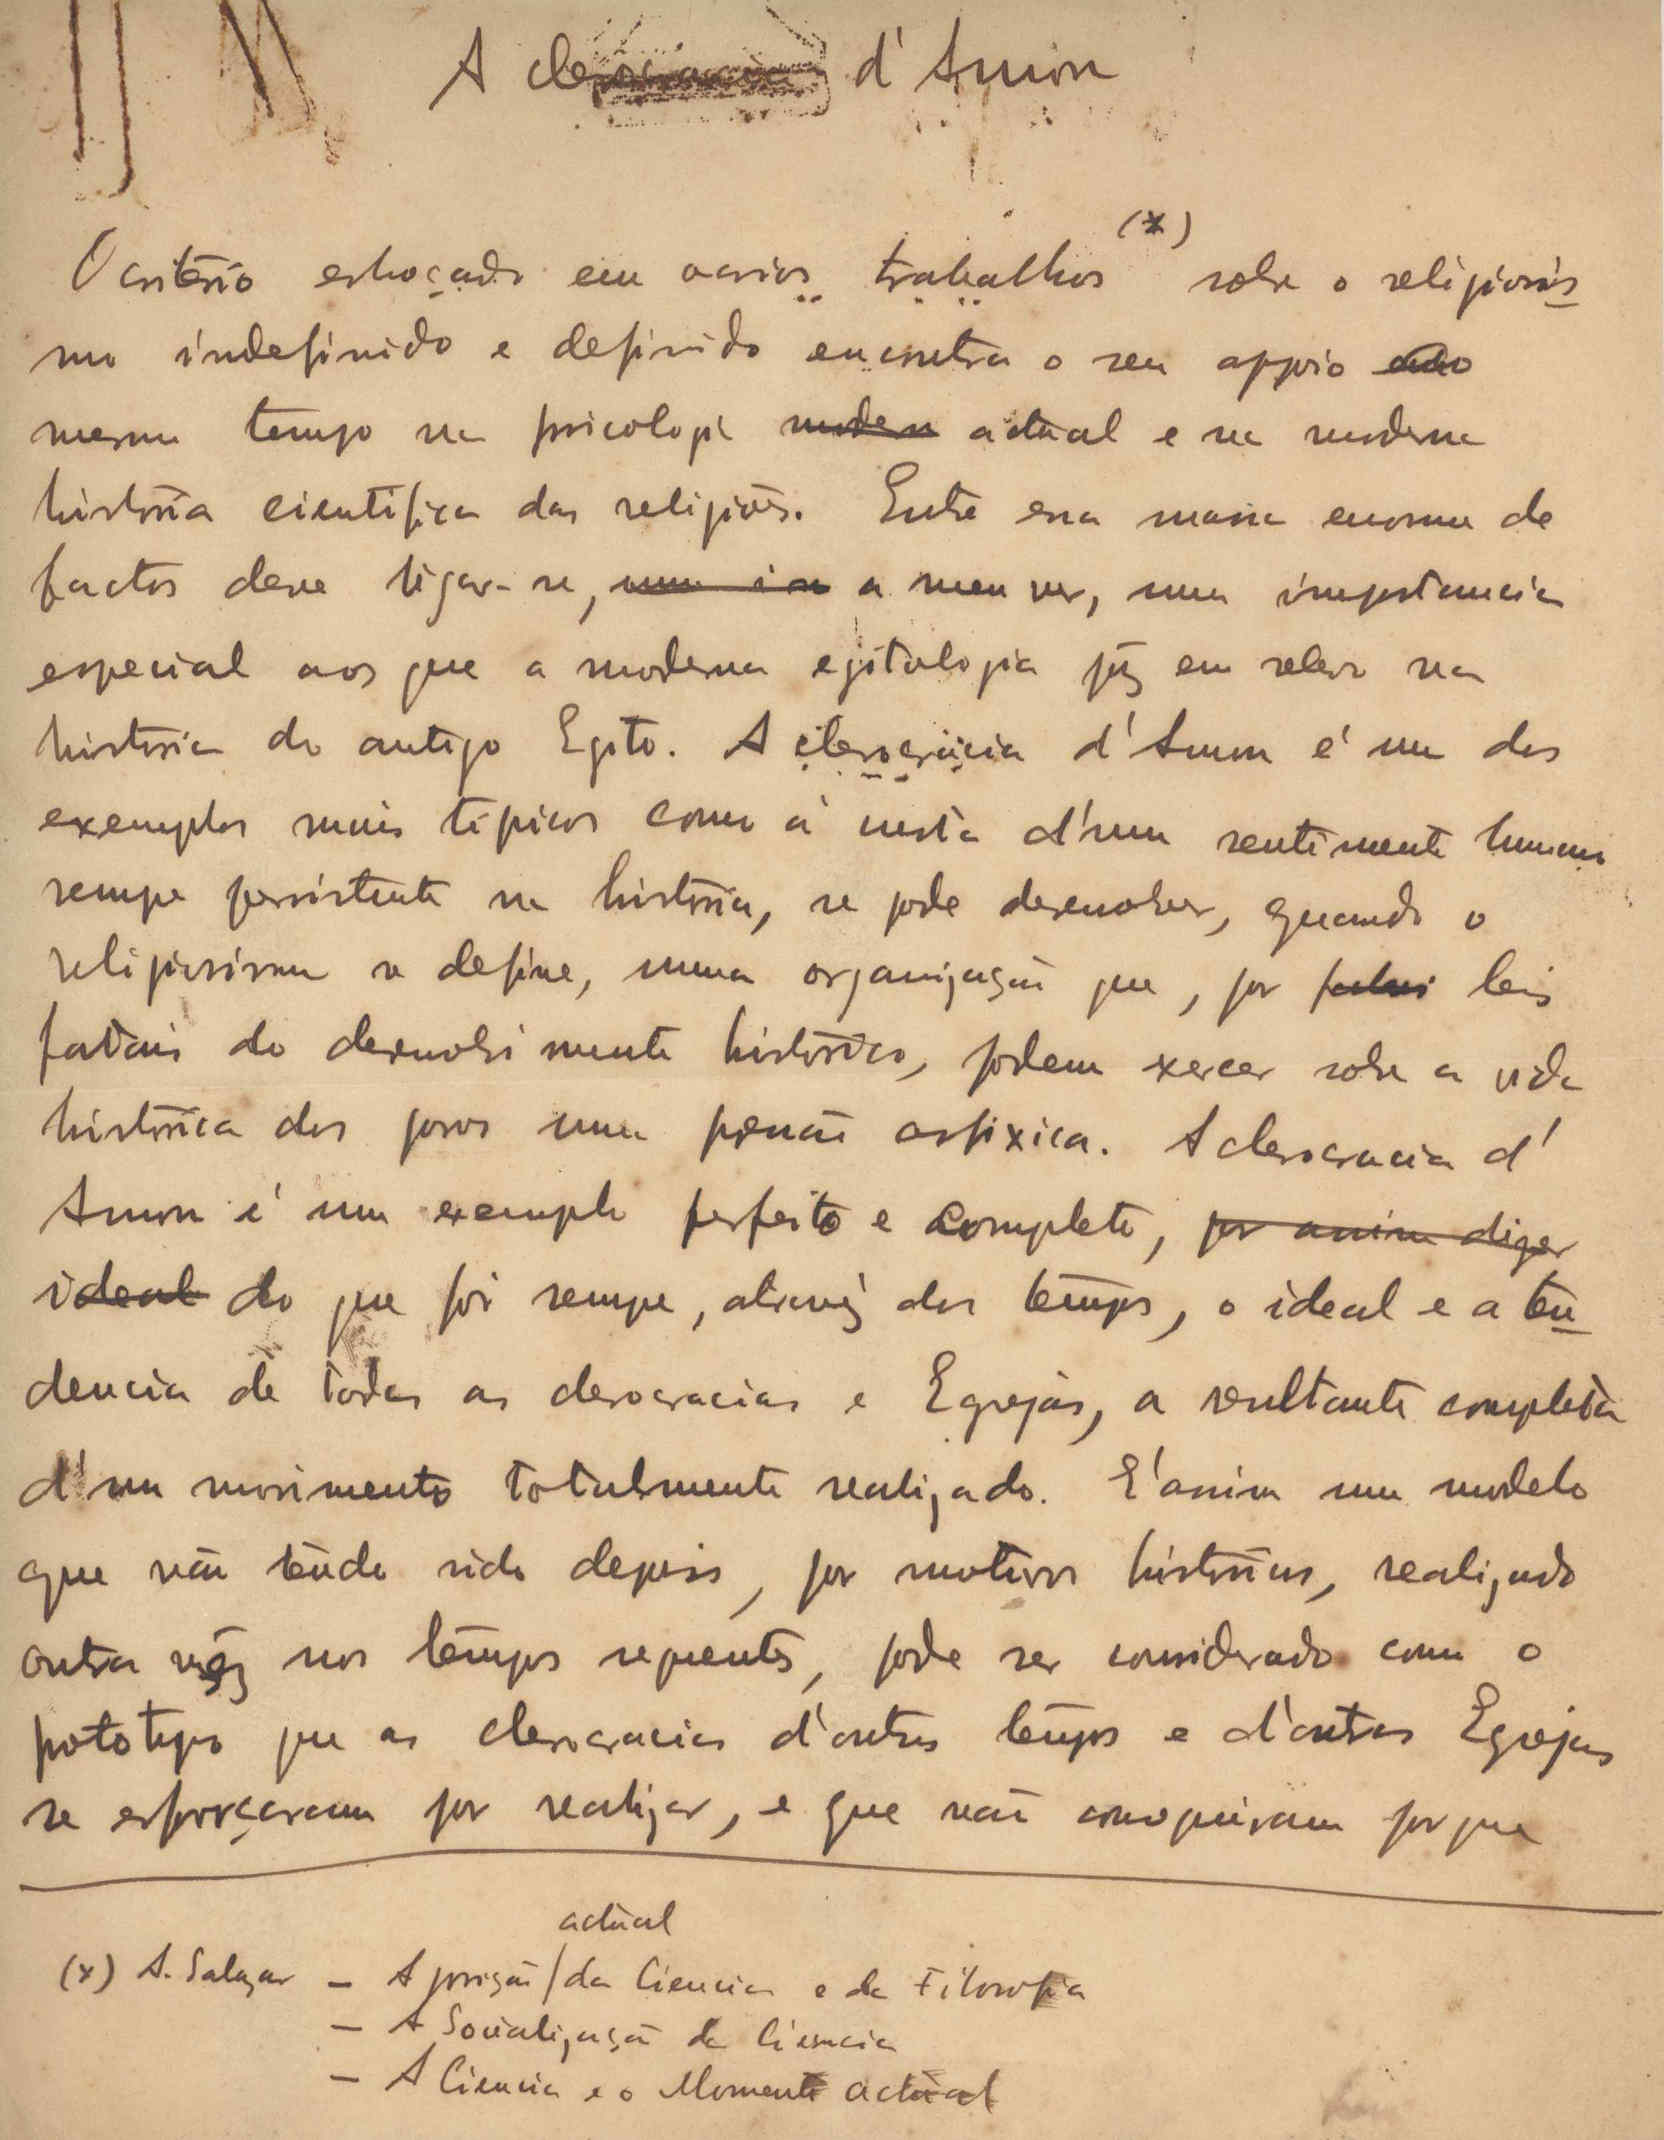 A clerocracia d'Amon
(x)
O critério esboçado em varios trabalhos sobre o religiosis
mo indefinido e definido encontra o seu appoio ao
mesmo tempo na psicologia modern actual e na moderna
história cientifica das religiões. Entre essa massa enorme de
factos deve ligar-se, a meu ver, uma importancia
especial aos que a moderna egitologia pôz em relevo na
historia do antigo Egito. A clerocracia d'Amon é um dos
exemplos mais tipicos como à custa d'um sentimento humano
sempre persistente na história, se pode desenvolver, quando o
religiosismo se define, numa organização que, por leis
fatais do desenvolvimento histórico, podem exercer sobre a vida
histórica dos povos uma pressão asfixica. A clerocracia d'
Amon é um exemplo perfeito e completo, por assim dizer
ideal do que foi sempre, através dos tempos, o ideal e a ten
dencia de todas as clerocracias e Egrejas, a resultante completa
d'um movimento totalmente realizado. E' assim um modelo
que não tendo sido depois, por motivos históricos, realizado
outra vez nos tempos seguentes, pode ser considerado como o
prototipo que as clerocracias d'outros tempos e d'outras Egrejas
se esforçaram por realizar, e que não conseguiram por que
actual
(x) A. Salazar – A posição / da Ciencia e da Filosofia
– A Socialização da Ciencia
– A Ciencia e o Momento actual